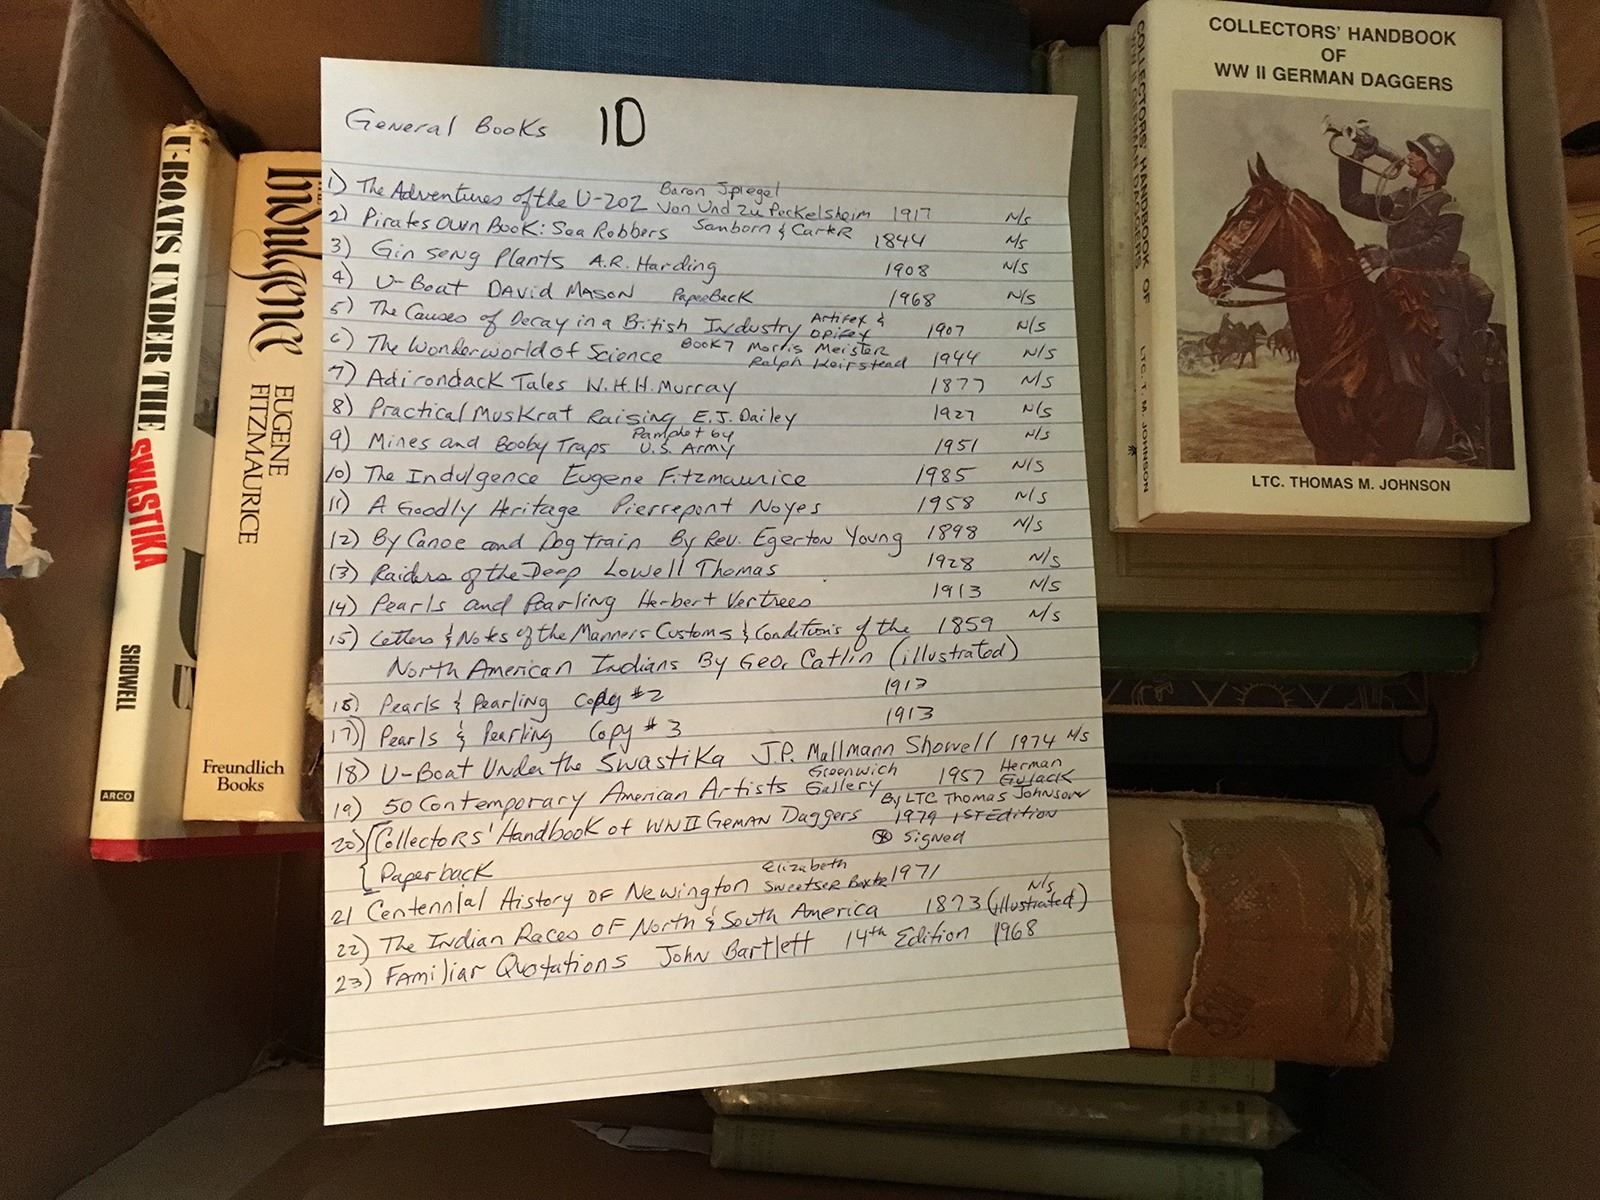 General Books 1D
1) The Adventures of the U-202 Baron Spiegel Von Und Zu Peckelsheim 1917 N/S
2) Pirates Own Book: Sea Robbers Sanborn & Carter 1844 N/S
3) Gin seng Plants A.R. Harding 1908 N/S
4) U-Boat David Mason Paperback 1968 N/S
5) The Causes of Decay in a British Industry Artifex & Opifex 1907 N/S
6) The Wonderworld of Science Book 7 Morris Meister Ralph Keirstead 1944 N/S
7) Adirondack Tales W.H.H. Murray 1877 N/S
8) Practical Muskrat Raising E.J. Dailey 1927 N/S
9) Mines and Booby Traps Pamphlet by U.S. Army 1951 N/S
10) The Indulgence Eugene Fitzmaurice 1985 N/S
11) A Goodly Heritage Pierrepont Noyes 1958 N/S
12) By Canoe and Dog train By Rev. Egerton Young 1898 N/S
13) Raiders of the Deep Lowell Thomas 1928 N/S
14) Pearls and Pearling Herbert Vertrees 1913 N/S
15) Letters & Notes of the Manners Customs & Conditions of the 1859 N/S
North American Indians By Geo. Catlin (illustrated)
16) Pearls & Pearling Copy #2 1913
17) Pearls & Pearling Copy #3 1913
18) U-Boat Under the Swastika J.P. Mallmann Showell 1974 N/S
19) 50 Contemporary American Artists Greenwich Gallery 1957 Herman Gulack
20) Collectors' Handbook of WWII Geman Daggers By LTC Thomas Johnson 1979 1st Edition
Paperback * Signed
21 Centennial History of Newington Elizabeth Sweetser Baxter 1971
22) The Indian Races of North & South America 1873 (illustrated) N/S
23) Familiar Quotations John Bartlett 14th Edition 1968
U-BOATS UNDER THE SWASTIKA
SHOWELL
ARCO
Indulgence
EUGENE
FITZMAURICE
Freundlich
Books
COLLECTORS' HANDBOOK
OF
WW II GERMAN DAGGERS
LTC. THOMAS M. JOHNSON
COLLECTORS' HANDBOOK OF
WW II GERMAN DAGGERS
LTC. T. M. JOHNSON